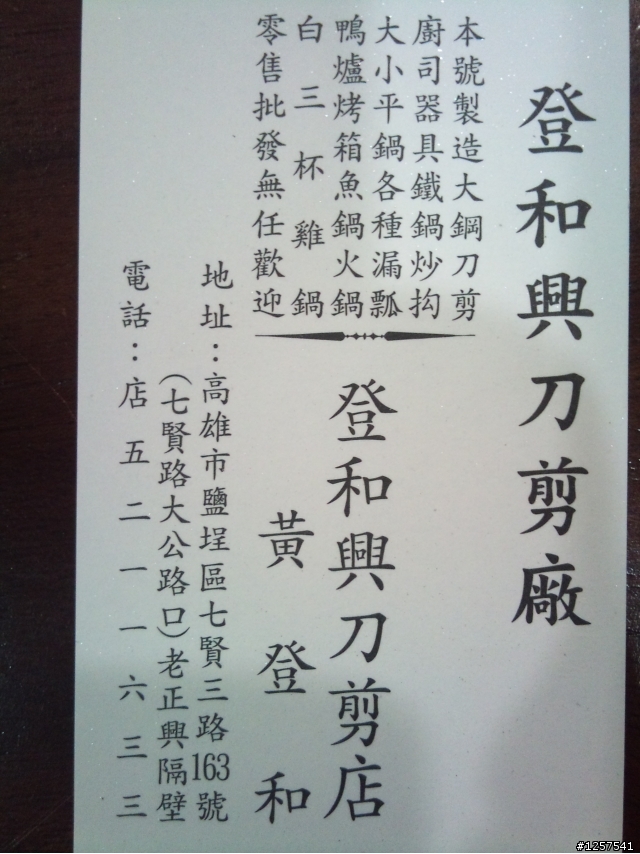 登和興刀剪廠
本號製造大鋼刀剪
廚司器具鐵鍋炒抅
大小平鍋各種漏瓢
鴨爐烤箱魚鍋火鍋
白三杯雞鍋
零售批發無任歡迎
登和興刀剪店
黃登和
地址：高雄市鹽埕區七賢三路163號
(七賢路大公路口)老正興隔壁
電話：店五二一一六三三
#1257541